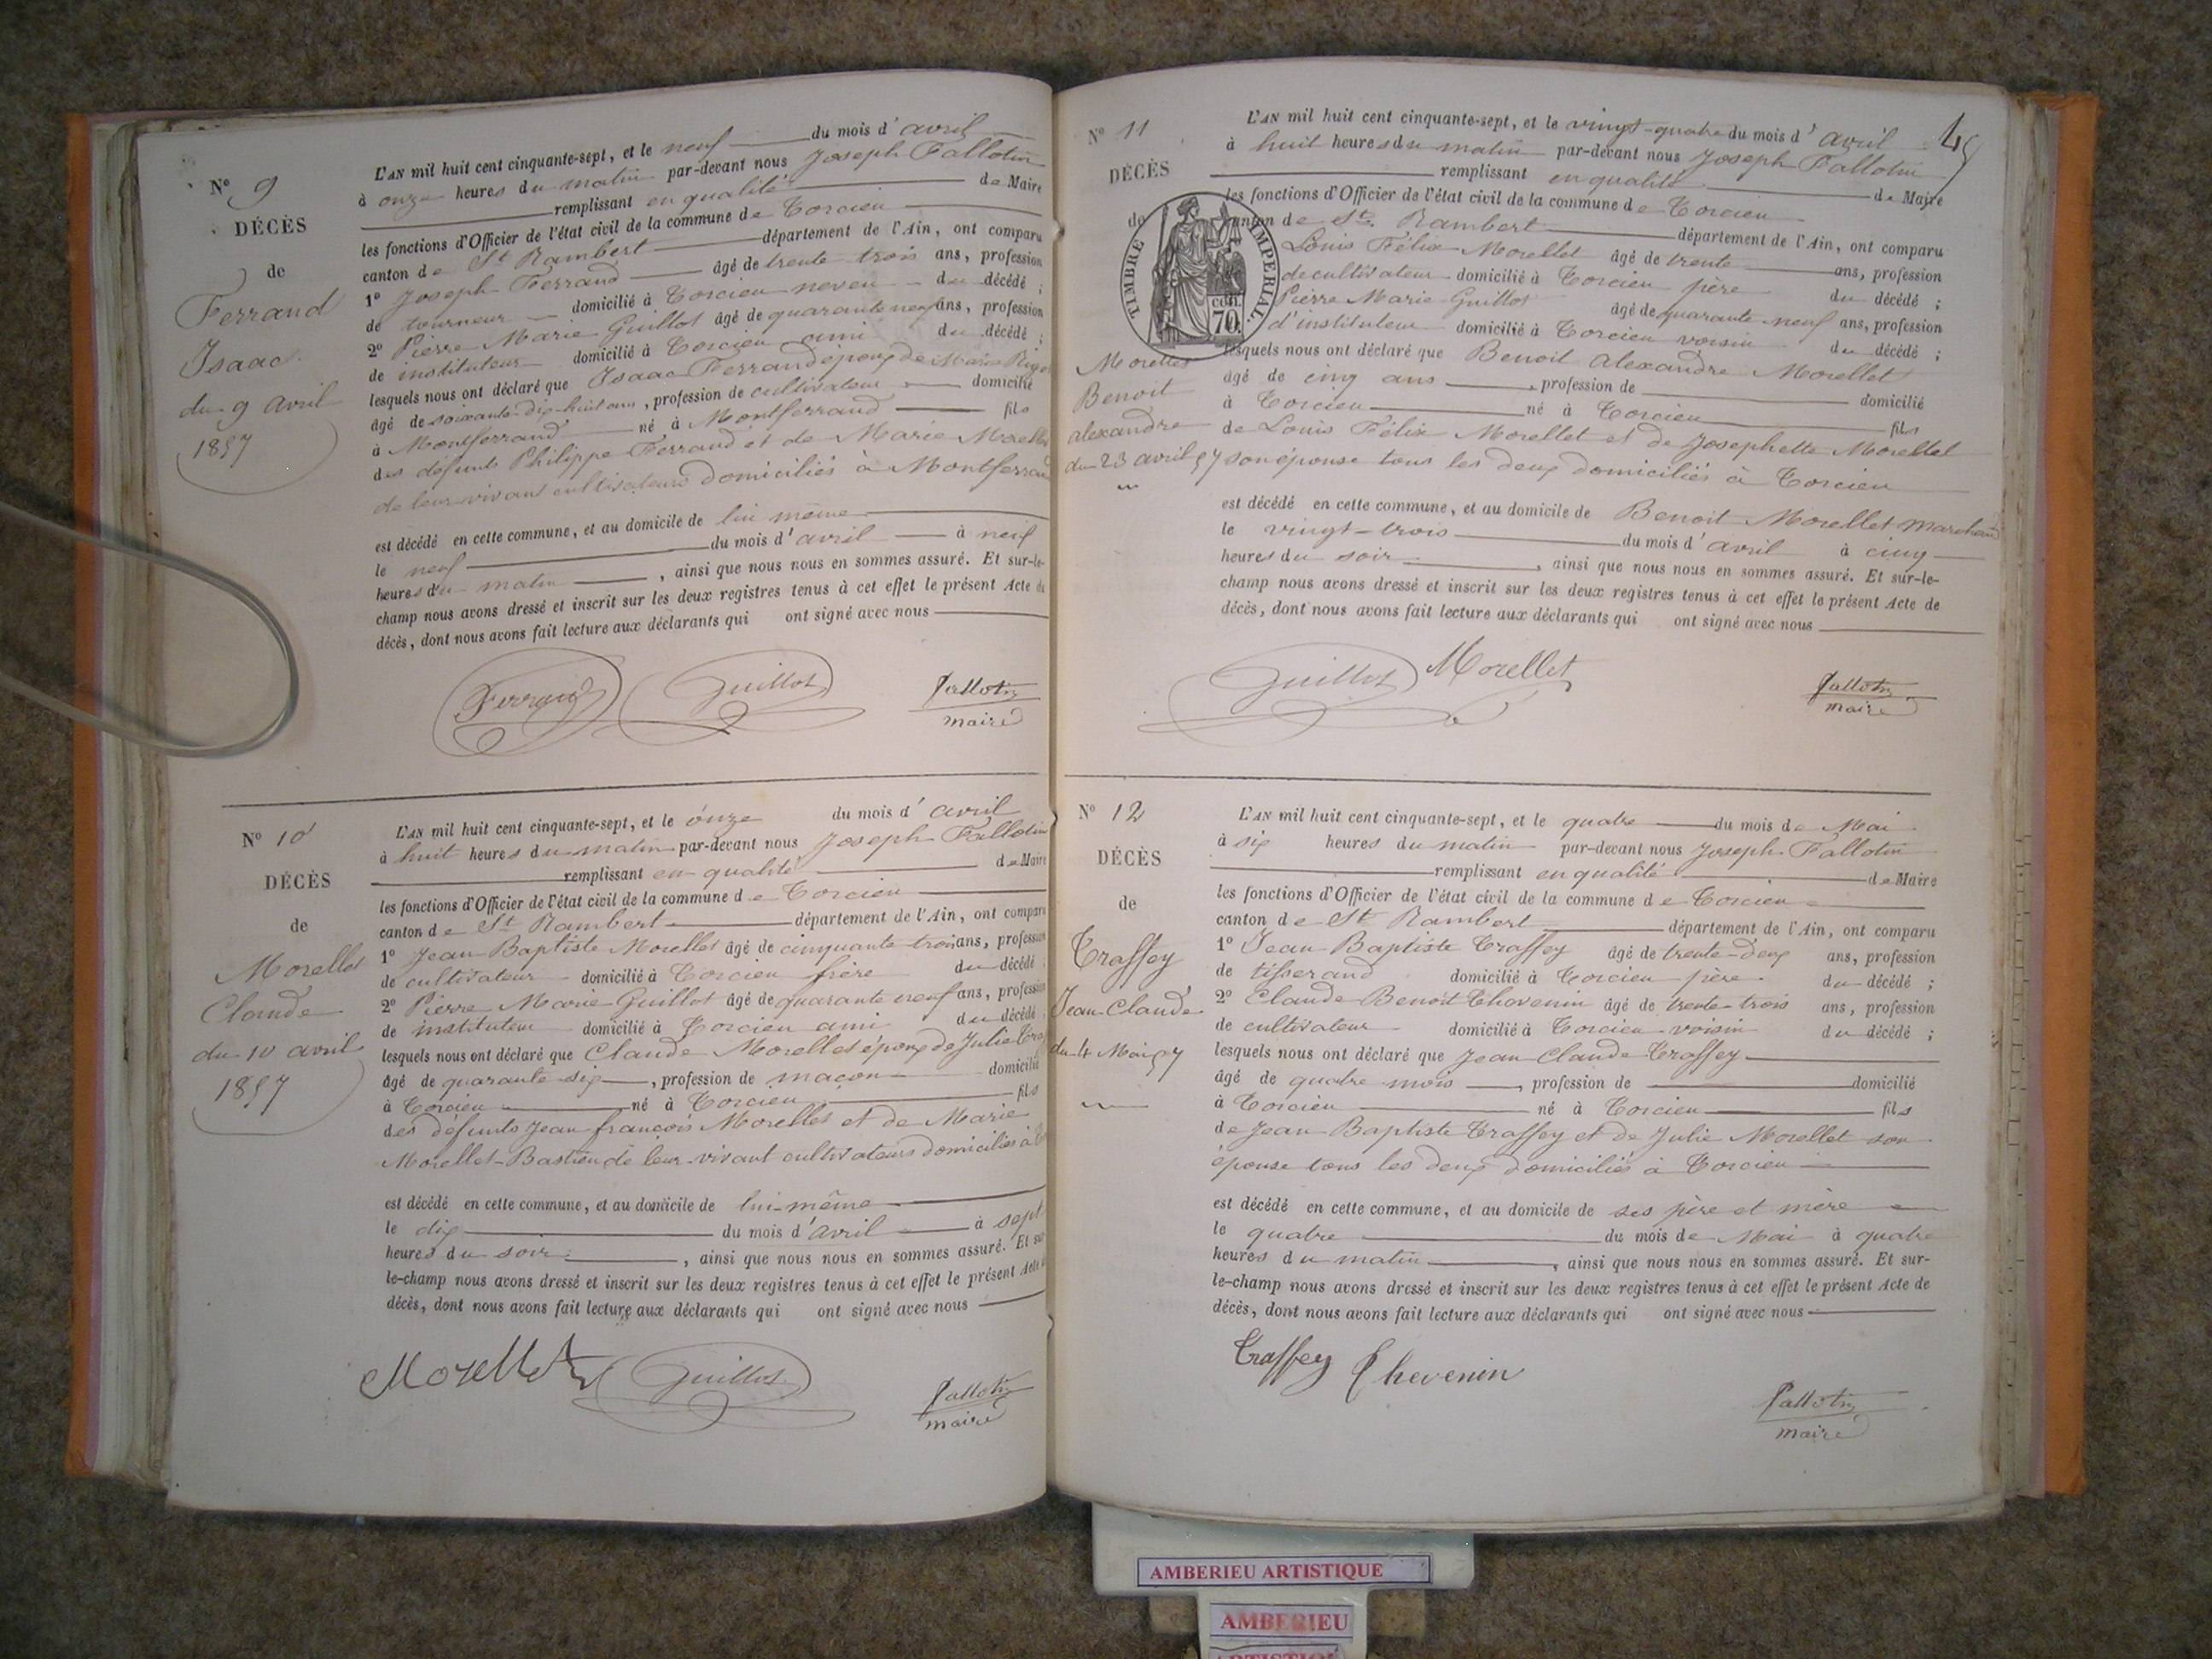 N° 9
DÉCÈS
de
Ferrand
Isaac
du 9 avril
1857
L'AN mil huit cent cinquante-sept, et le neuf du mois d'avril
à onze heures du matin par-devant nous Joseph Fallotin
remplissant en qualité de Maire
les fonctions d'Officier de l'état civil de la commune de Torcieu
canton de St Rambert département de l'Ain, ont comparu
1° Joseph Ferrand âgé de trente trois ans, profession
de tourneur domicilié à Torcieu neveu du décédé ;
2° Pierre Marie Guillot âgé de quarante neuf ans, profession
de instituteur domicilié à Torcieu ami du décédé ;
lesquels nous ont déclaré que Isaac Ferrand époux de Marie
âgé de soixante-dix-huit ans, profession de cultivateur domicilié
à Montferrand né à Montferrand fils
des défunts Philippe Ferrand et de Marie Morellet
de leur vivant cultivateurs domiciliés à Montferrand
est décédé en cette commune, et au domicile de lui même
le neuf du mois d'avril à neuf
heures du matin, ainsi que nous nous en sommes assuré. Et sur-le-
champ nous avons dressé et inscrit sur les deux registres tenus à cet effet le présent Acte de
décès, dont nous avons fait lecture aux déclarants qui ont signé avec nous
Ferrand Guillot Fallotin
maire
N° 10
DÉCÈS
de
Morellet
Claude
du 10 avril
1857
L'AN mil huit cent cinquante-sept, et le onze du mois d'avril
à huit heures du matin par-devant nous Joseph Fallotin
remplissant en qualité de Maire
les fonctions d'Officier de l'état civil de la commune de Torcieu
canton de St Rambert département de l'Ain, ont comparu
1° Jean Baptiste Morellet âgé de cinquante trois ans, profession
de cultivateur domicilié à Torcieu frère du décédé ;
2° Pierre Marie Guillot âgé de quarante neuf ans, profession
de instituteur domicilié à Torcieu ami du décédé ;
lesquels nous ont déclaré que Claude Morellet époux de Julie
âgé de quarante six, profession de maçon domicilié
à Torcieu né à Torcieu fils
des défunts Jean françois Morellet et de Marie
Morellet-Bastien de leur vivant cultivateurs domiciliés à
est décédé en cette commune, et au domicile de lui-même
le dix du mois d'avril à sept
heures du soir, ainsi que nous nous en sommes assuré. Et sur-
le-champ nous avons dressé et inscrit sur les deux registres tenus à cet effet le présent Acte de
décès, dont nous avons fait lecture aux déclarants qui ont signé avec nous
Morellet Guillot Fallotin
maire
45
N° 11
DÉCÈS
de
TIMBRE IMPERIAL
cen.
70.
Morellet
Benoit
alexandre
du 23 avril 57
L'AN mil huit cent cinquante-sept, et le vingt-quatre du mois d'avril
à huit heures du matin par-devant nous Joseph Fallotin
remplissant en qualité de Maire
les fonctions d'Officier de l'état civil de la commune de Torcieu
canton de St Rambert département de l'Ain, ont comparu
Louis Félix Morellet âgé de trente ans, profession
de cultivateur domicilié à Torcieu père du décédé ;
Pierre Marie Guillot âgé de quarante neuf ans, profession
d'instituteur domicilié à Torcieu voisin du décédé ;
lesquels nous ont déclaré que Benoit alexandre Morellet
âgé de cinq ans, profession de domicilié
à Torcieu né à Torcieu fils
de Louis Félix Morellet et de Josephette Morellet
son épouse tous les deux domiciliés à Torcieu
est décédé en cette commune, et au domicile de Benoit Morellet marchand
le vingt-trois du mois d'avril à cinq
heures du soir, ainsi que nous nous en sommes assuré. Et sur-le-
champ nous avons dressé et inscrit sur les deux registres tenus à cet effet le présent Acte de
décès, dont nous avons fait lecture aux déclarants qui ont signé avec nous
Guillot Morellet Fallotin
maire
N° 12
DÉCÈS
de
Traffey
Jean-Claude
du 4 Mai 57
L'AN mil huit cent cinquante-sept, et le quatre du mois de Mai
à six heures du matin par-devant nous Joseph Fallotin
remplissant en qualité de Maire
les fonctions d'Officier de l'état civil de la commune de Torcieu
canton de St Rambert département de l'Ain, ont comparu
1° Jean Baptiste Traffey âgé de trente-deux ans, profession
de tisserand domicilié à Torcieu père du décédé ;
2° Claude Benoit Thevenin âgé de trente-trois ans, profession
de cultivateur domicilié à Torcieu voisin du décédé ;
lesquels nous ont déclaré que Jean Claude Traffey
âgé de quatre mois, profession de domicilié
à Torcieu né à Torcieu fils
de Jean Baptiste Traffey et de Julie Morellet son
épouse tous les deux domiciliés à Torcieu
est décédé en cette commune, et au domicile de ses père et mère
le quatre du mois de Mai à quatre
heures du matin, ainsi que nous nous en sommes assuré. Et sur-
le-champ nous avons dressé et inscrit sur les deux registres tenus à cet effet le présent Acte de
décès, dont nous avons fait lecture aux déclarants qui ont signé avec nous
Traffey Thevenin
Fallotin
maire
AMBERIEU ARTISTIQUE
AMBERIEU
ARTISTIQUE